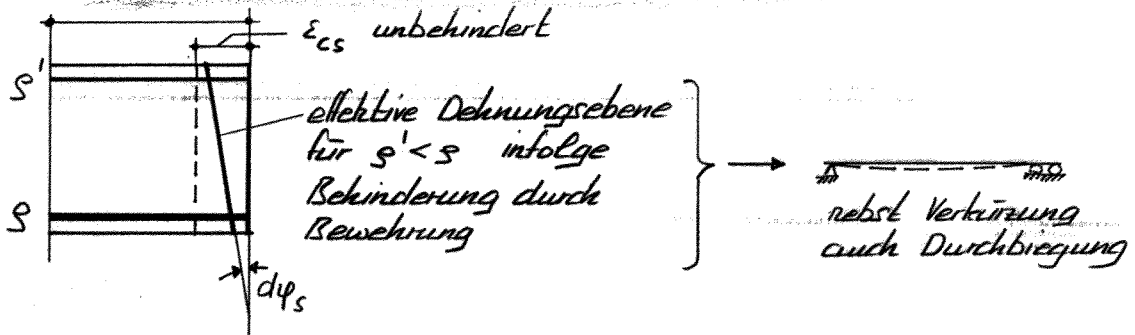 ε_cs unbehindert
ρ'
effektive Dehnungsebene
für ρ' < ρ infolge
Behinderung durch
Bewehrung
ρ
dφ_s
nebst Verkürzung
auch Durchbiegung